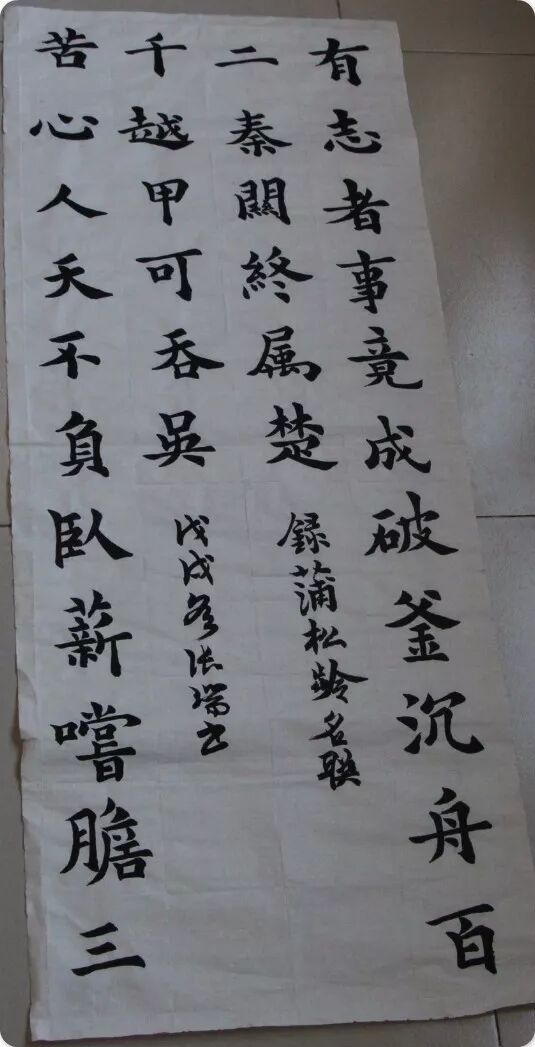 有志者事竟成破釜沉舟百
二秦關終属楚
録蒲松龄名联
苦心人天不負臥薪嚐膽三
千越甲可吞吳
戊戌冬张瑞书